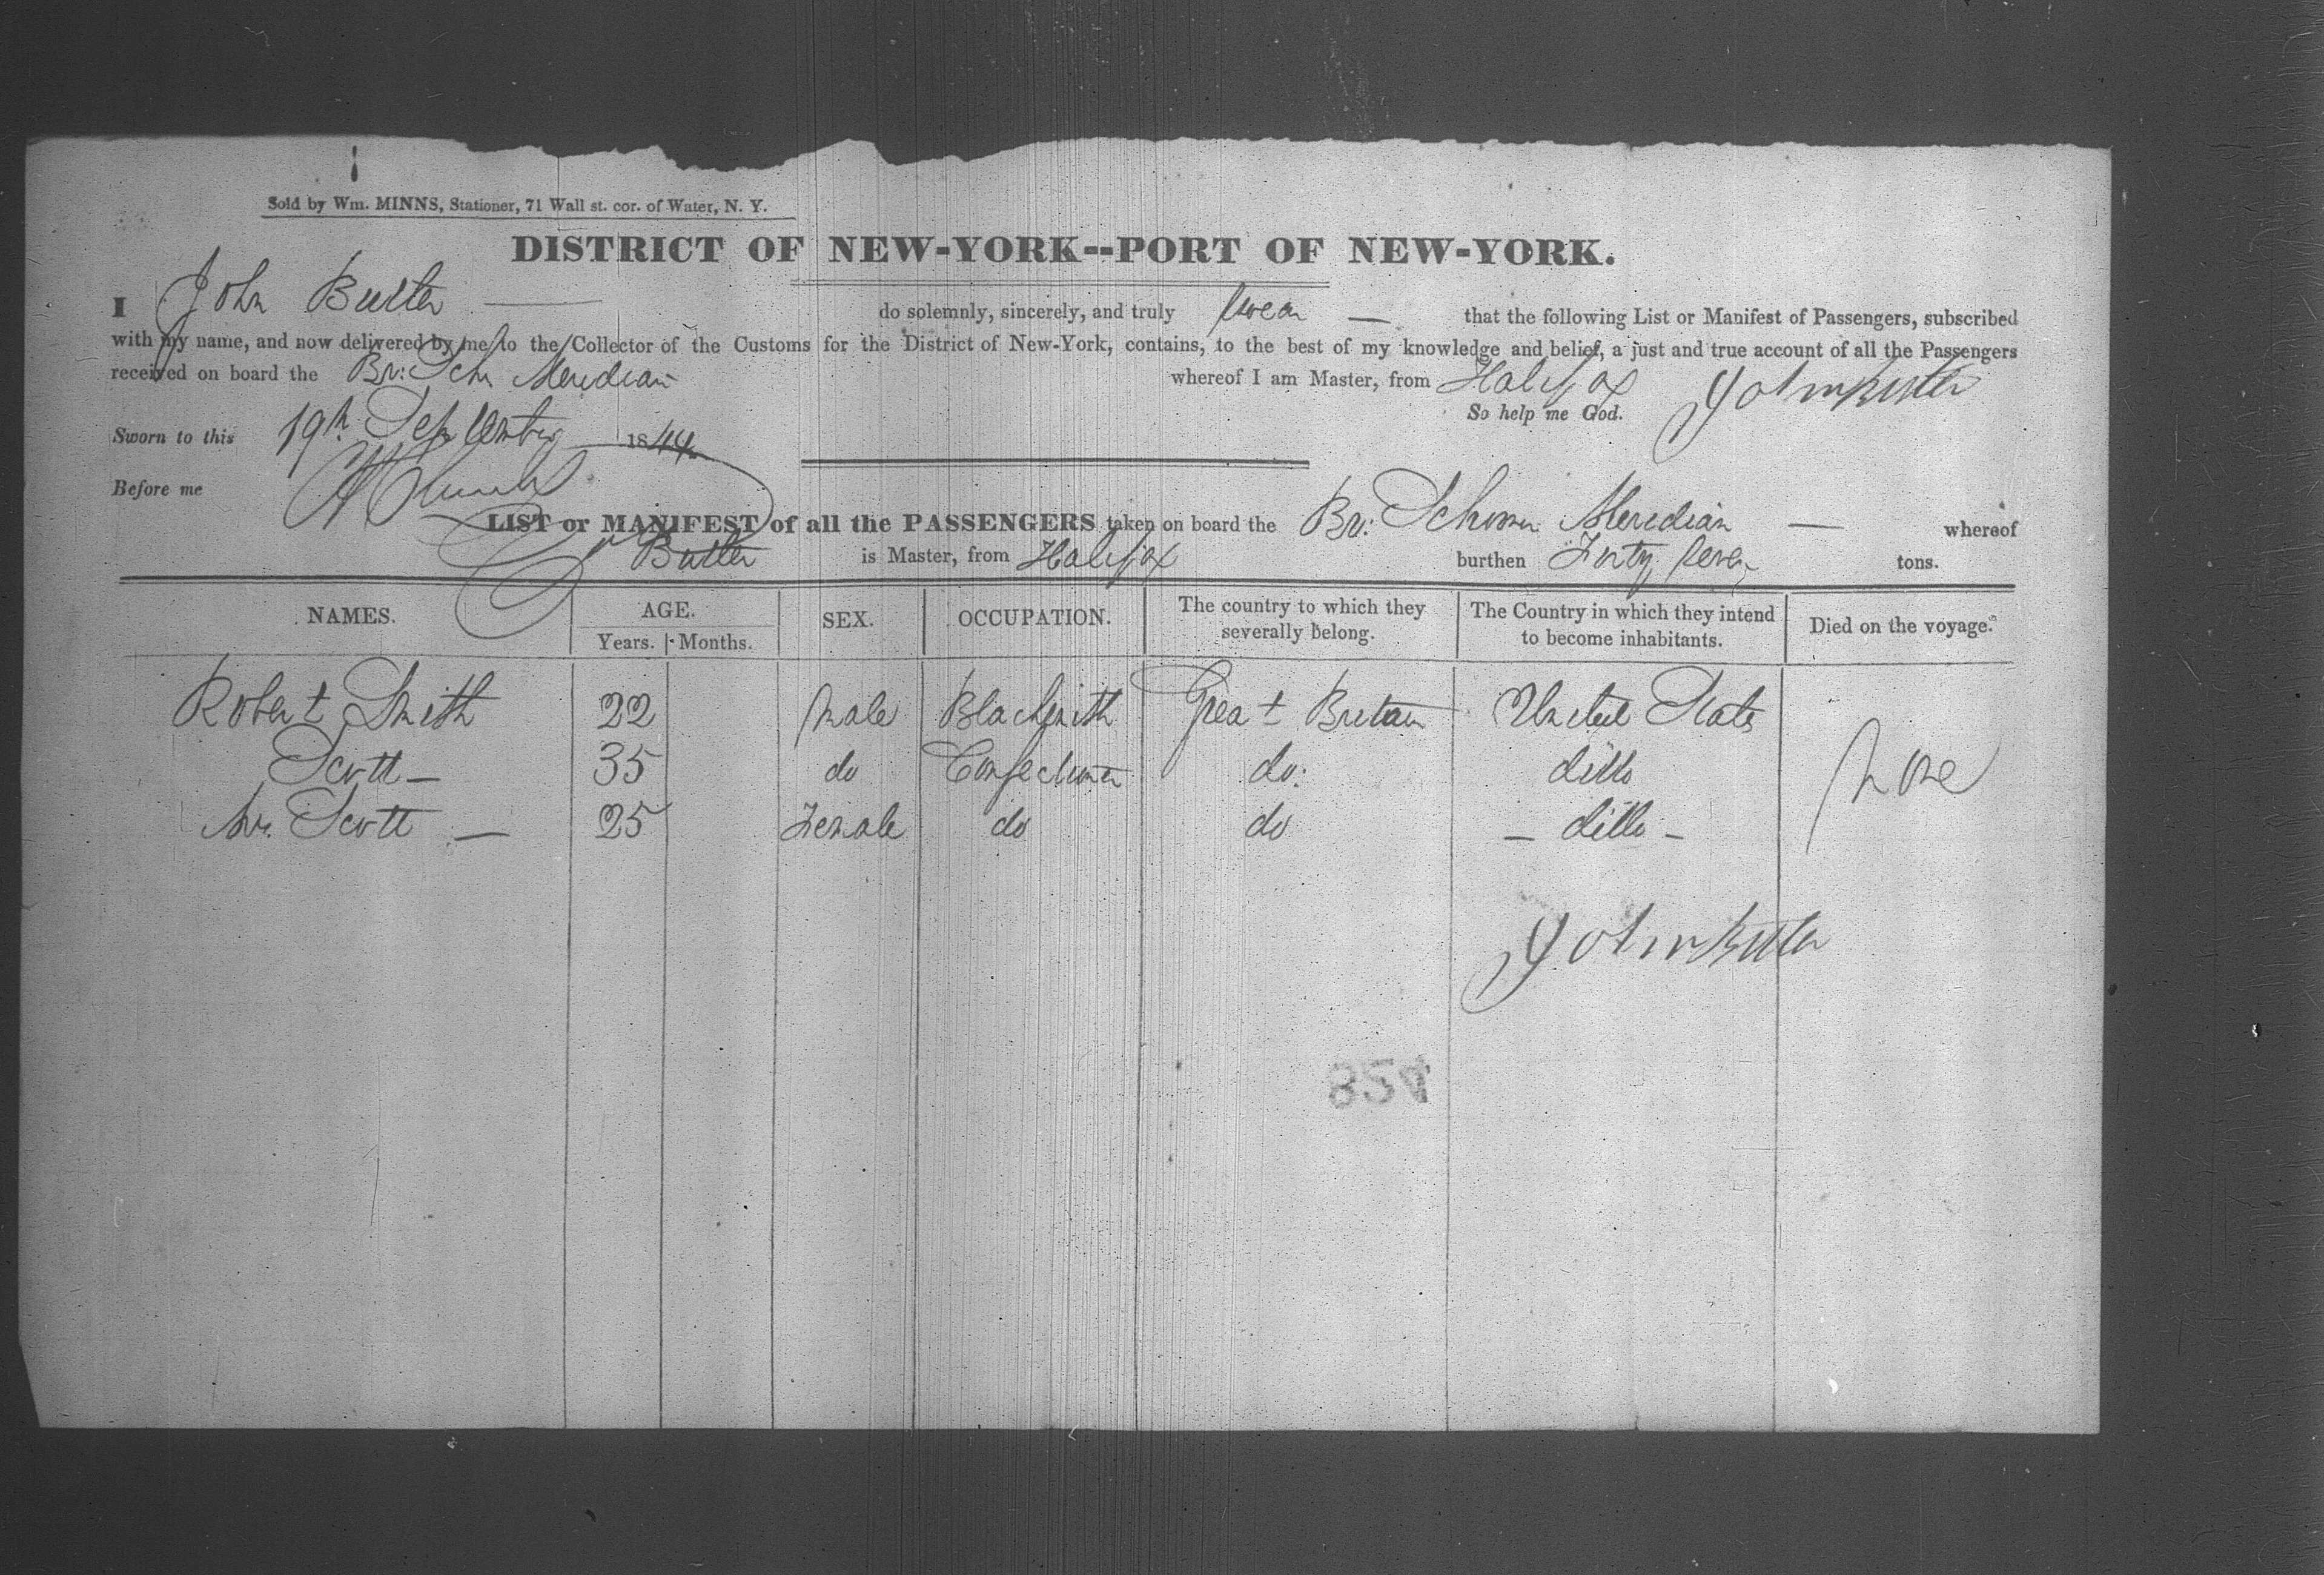 Sold by Wm. MINNS, Stationer, 71 Wall st. cor. of Water, N. Y.
DISTRICT OF NEW-YORK--PORT OF NEW-YORK.
I John Butler do solemnly, sincerely, and truly swear — that the following List or Manifest of Passengers, subscribed
with my name, and now delivered by me to the Collector of the Customs for the District of New-York, contains, to the best of my knowledge and belief, a just and true account of all the Passengers
received on board the Br: Schr Meridian whereof I am Master, from Halifax
So help me God. John Butler
Sworn to this 19th September 1844
Before me
LIST or MANIFEST of all the PASSENGERS taken on board the Br: Schooner Meridian — whereof
Butler is Master, from Halifax burthen Forty seven tons.
NAMES. AGE. Years. Months. SEX. OCCUPATION. The country to which they severally belong. The Country in which they intend to become inhabitants. Died on the voyage.
Robert Smith 22 Male Blacksmith Great Britain United States
Scott — 35 do Confectioner do: ditto None
Mrs. Scott — 25 Female do do — ditto —
John Butler
824